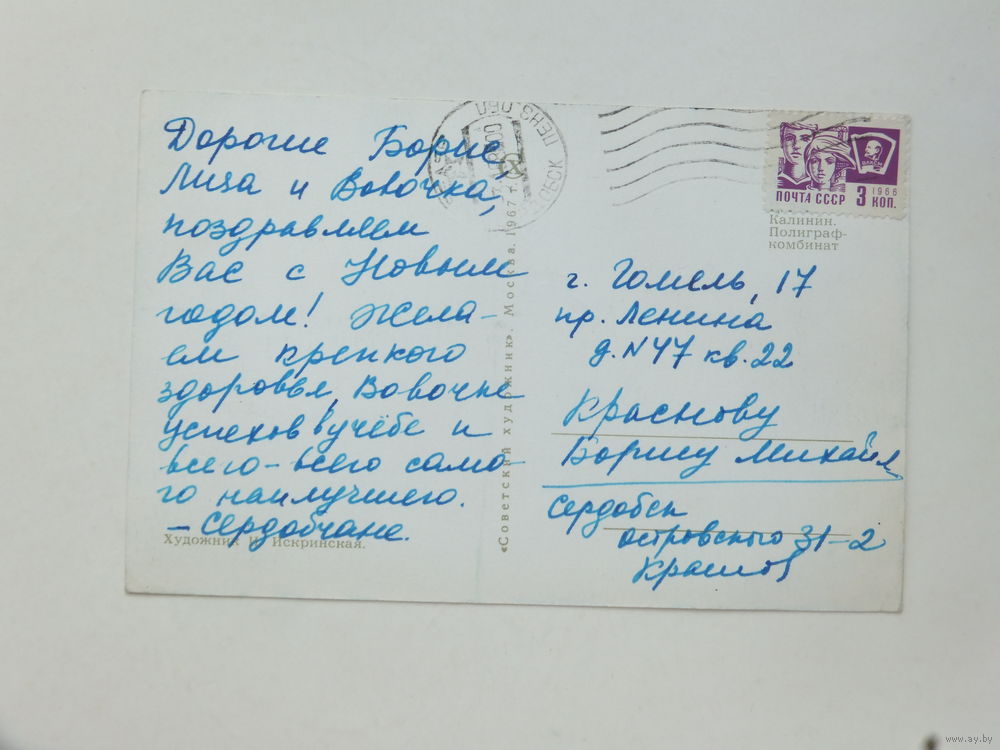 Дорогие Борис
Лиза и Вовочка,
поздравляем
Вас с Новым
годом! Жела-
ем крепкого
здоровья, Вовочке
успехов в учёбе и
всего-всего само-
го наилучшего.
-Сердобчане.
Художник И. Искринская.
«Советский художник». Москва. 1967 г.
ПОЧТА СССР 3 КОП.
1966
ВЛКСМ
Калинин.
Полиграф-
комбинат
г. Гомель, 17
пр. Ленина
д. N47 кв. 22
Краснову
Борису Михайл
Сердобск
Островского 31-2
Краснов
www.ay.by